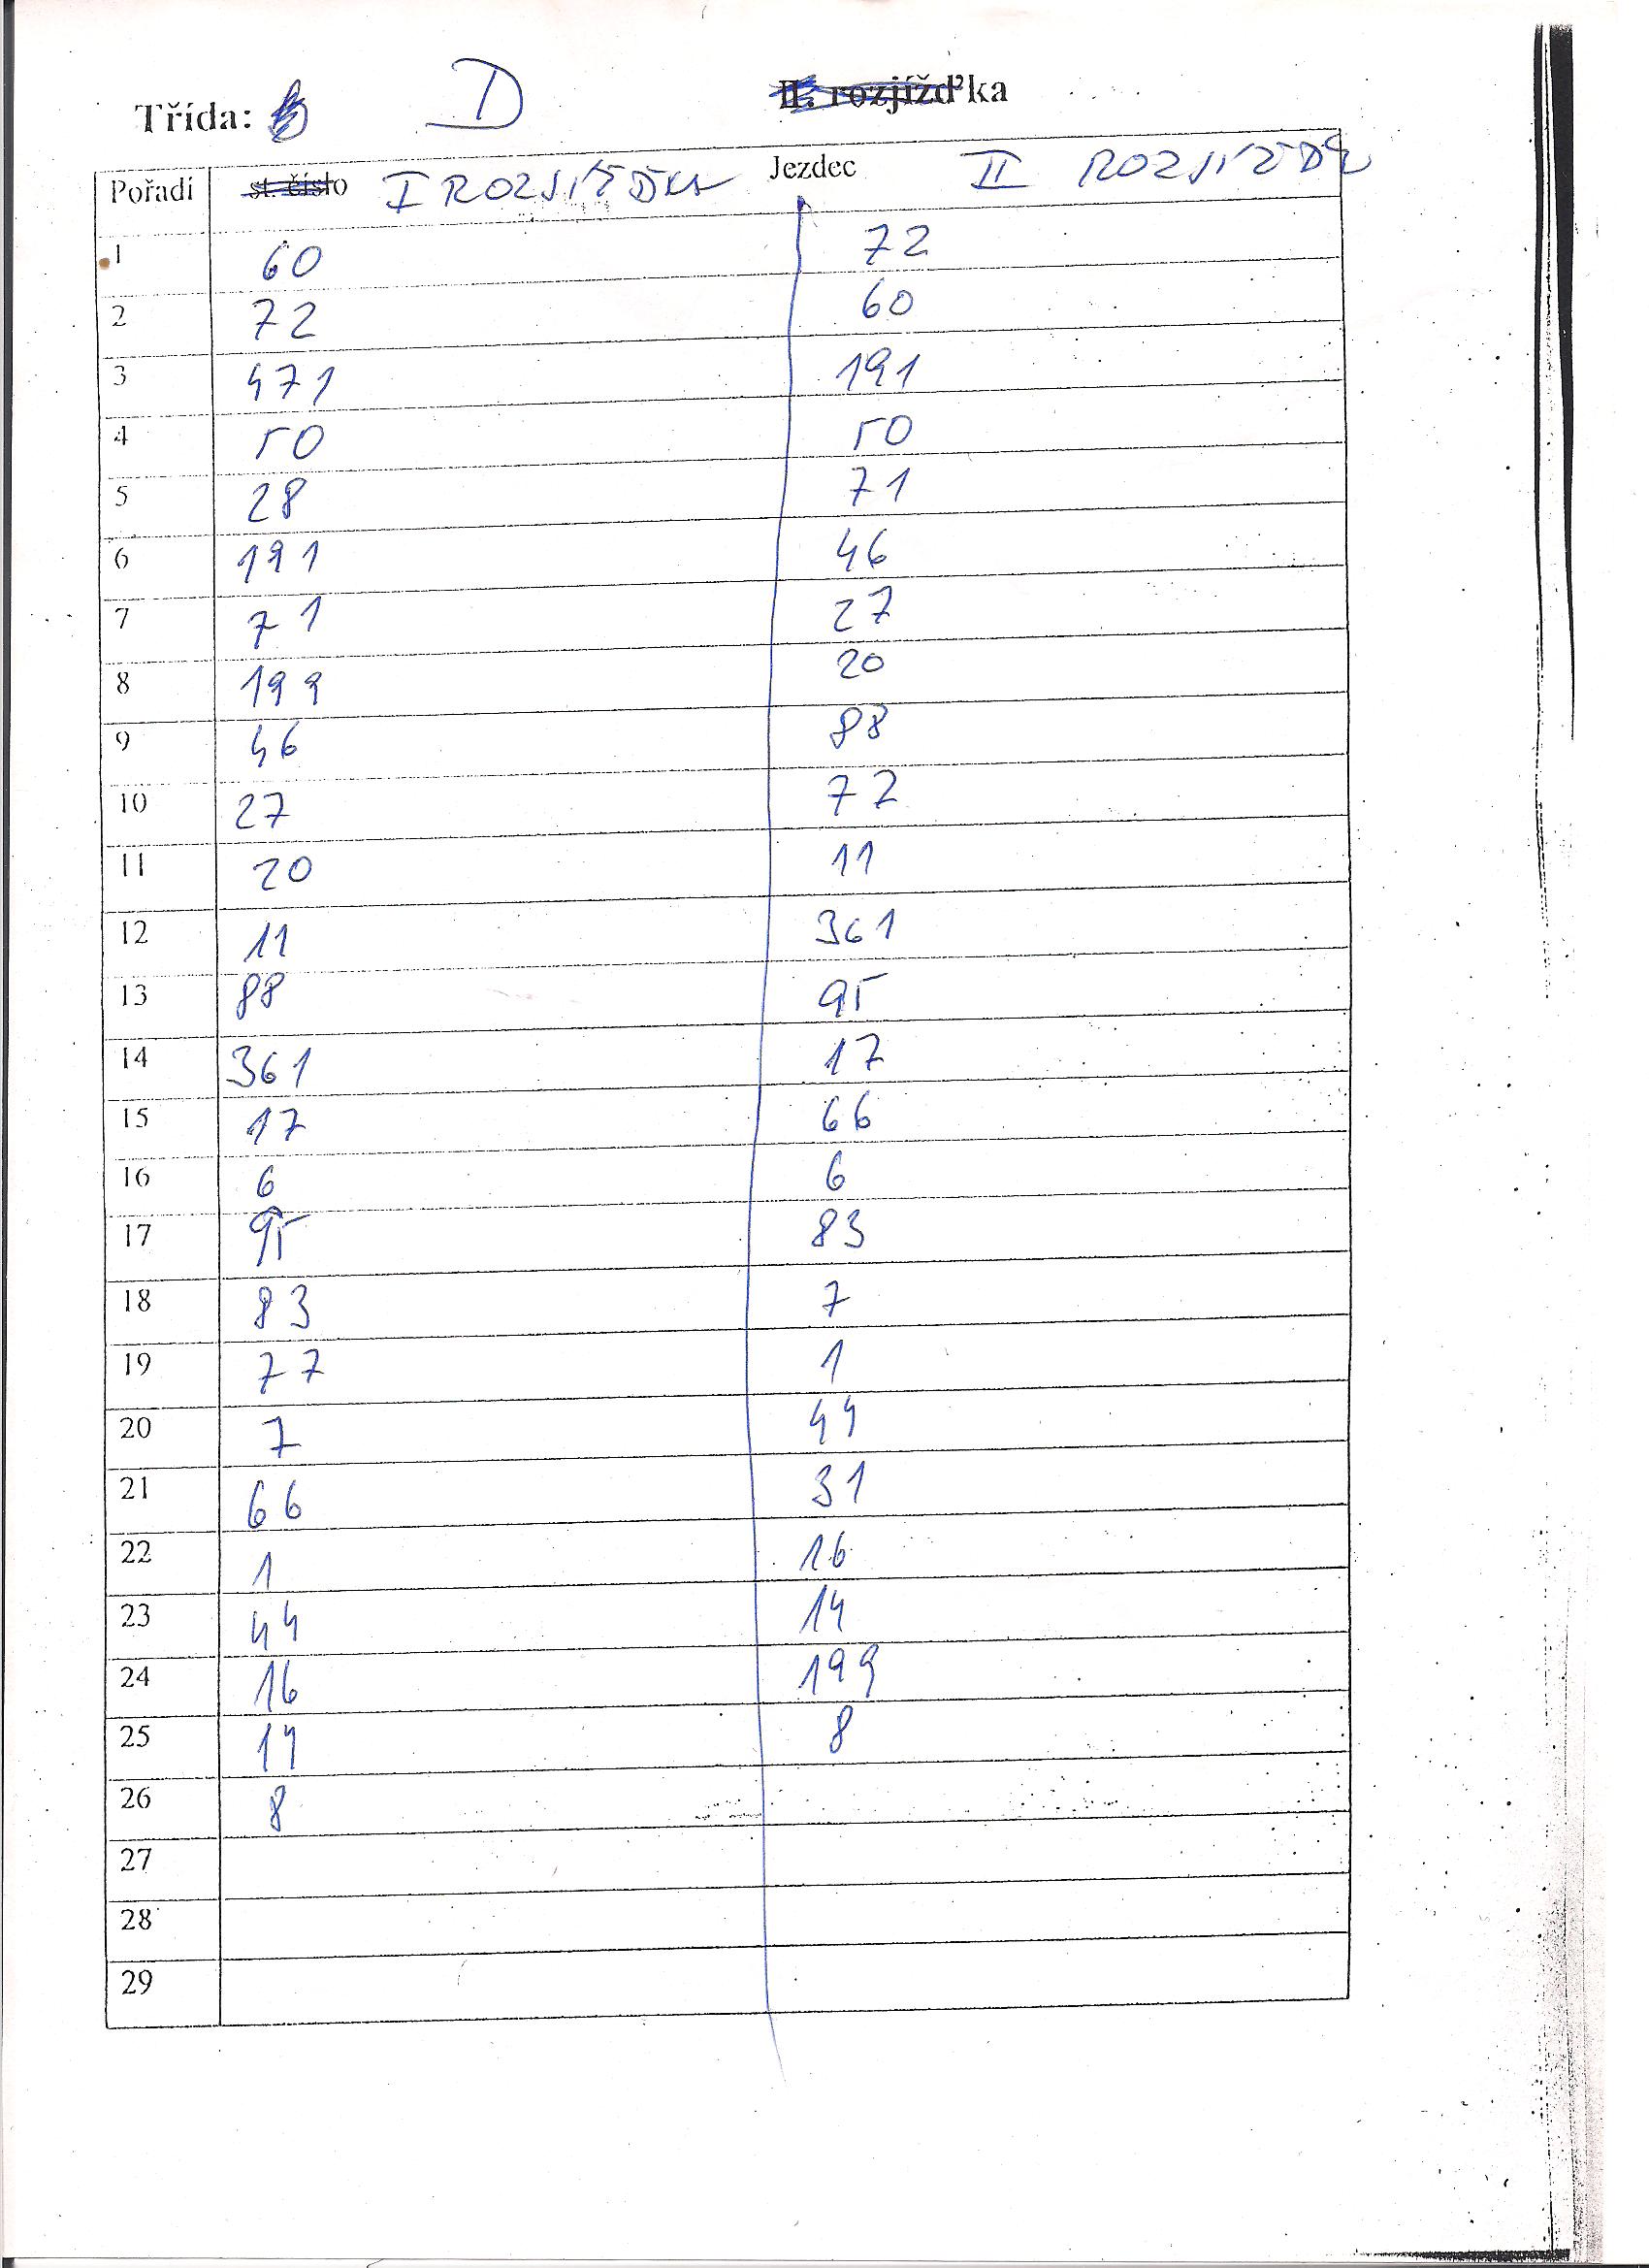 Třída: D II. rozjížďka
Pořadí st. číslo I ROZJÍŽĎKA Jezdec II ROZJÍŽĎK
1 60 72
2 72 60
3 471 191
4 50 50
5 28 71
6 191 46
7 71 27
8 199 20
9 46 88
10 27 72
11 20 11
12 11 361
13 88 95
14 361 17
15 17 66
16 6 6
17 95 83
18 83 7
19 77 1
20 7 44
21 66 31
22 1 16
23 44 14
24 16 199
25 14 8
26 8
27
28
29